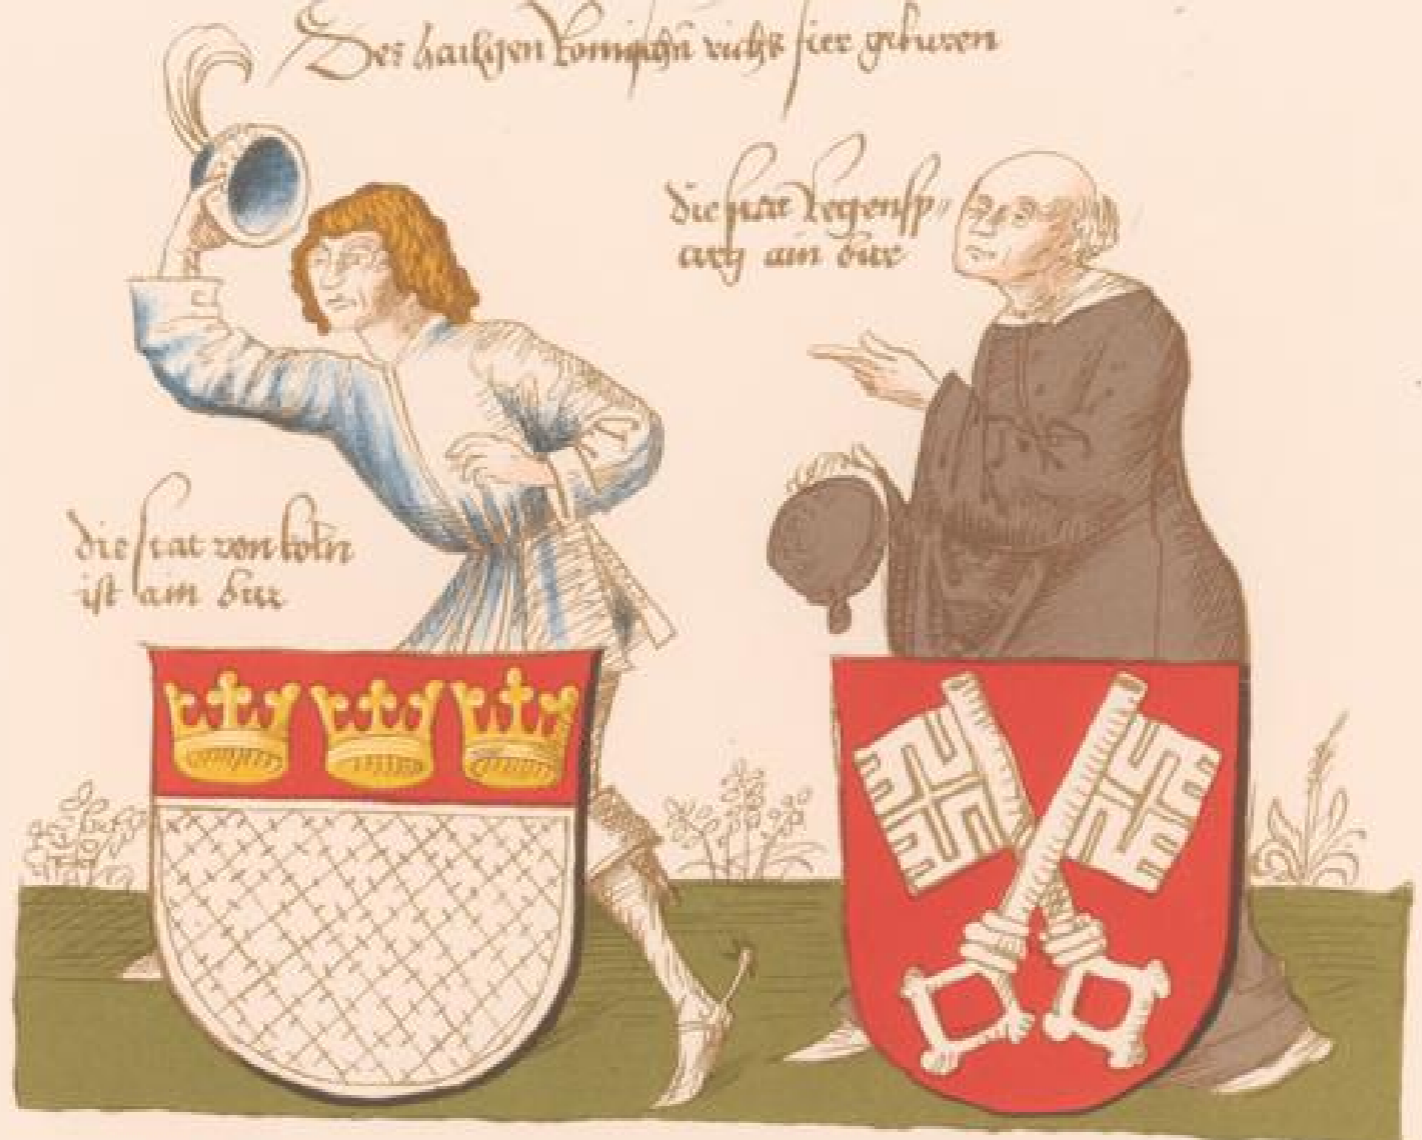 Des hailigen Romischn richs fier geburen
die stat Regensp„
urg ain bur
die stat von koln
ist ain bur